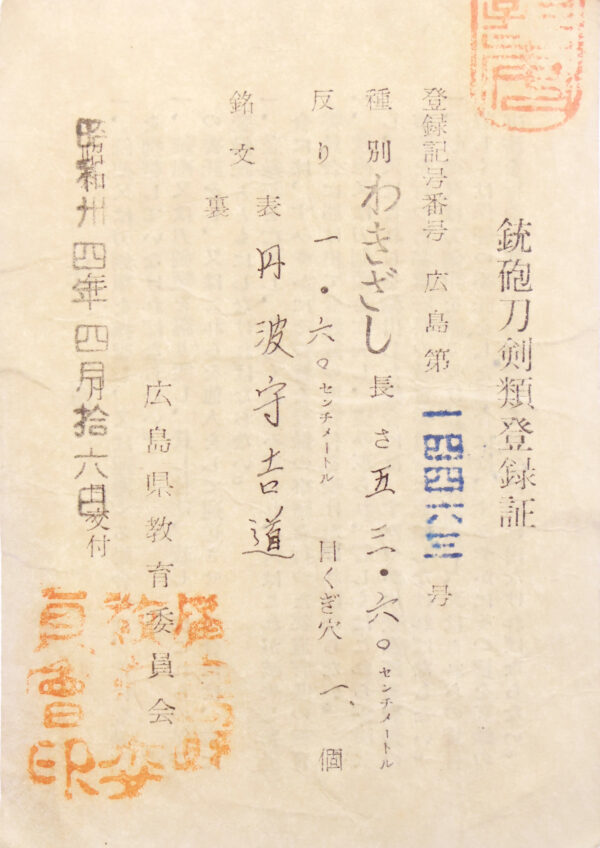 銃砲刀剣類登録証
登録記号番号 広島第 一四四六三 号
種別 わきざし 長さ 五三・六〇 センチメートル
反り 一・六〇 センチメートル 目くぎ穴 一、個
銘文 表 丹波守吉道
裏
広島県教育委員会
昭和卅四年四月拾六日交付
員會印